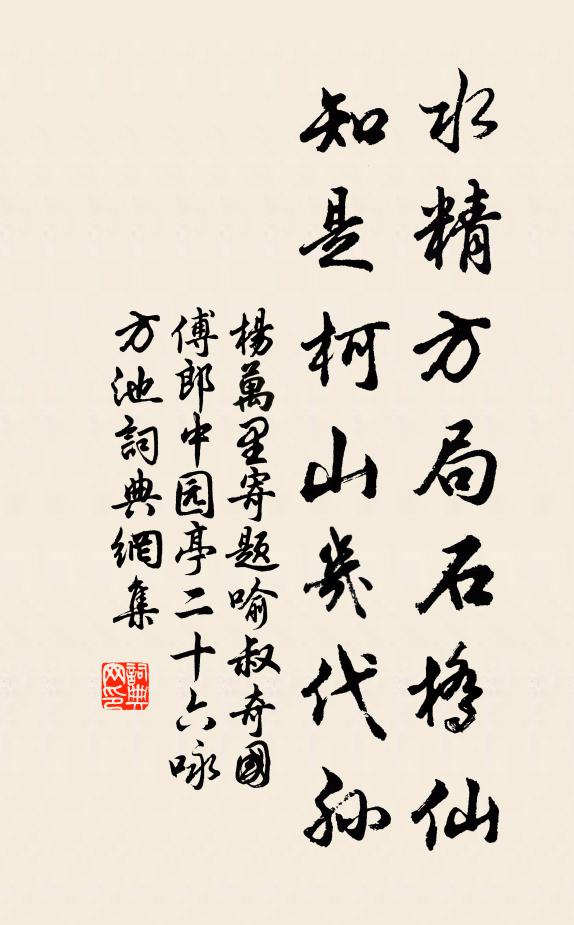 水精方局石橋仙
知是柯山幾代孫
楊萬里寄題喻叔奇國
傅郎中园亭二十六咏
方池詞典網集
詞典
网印